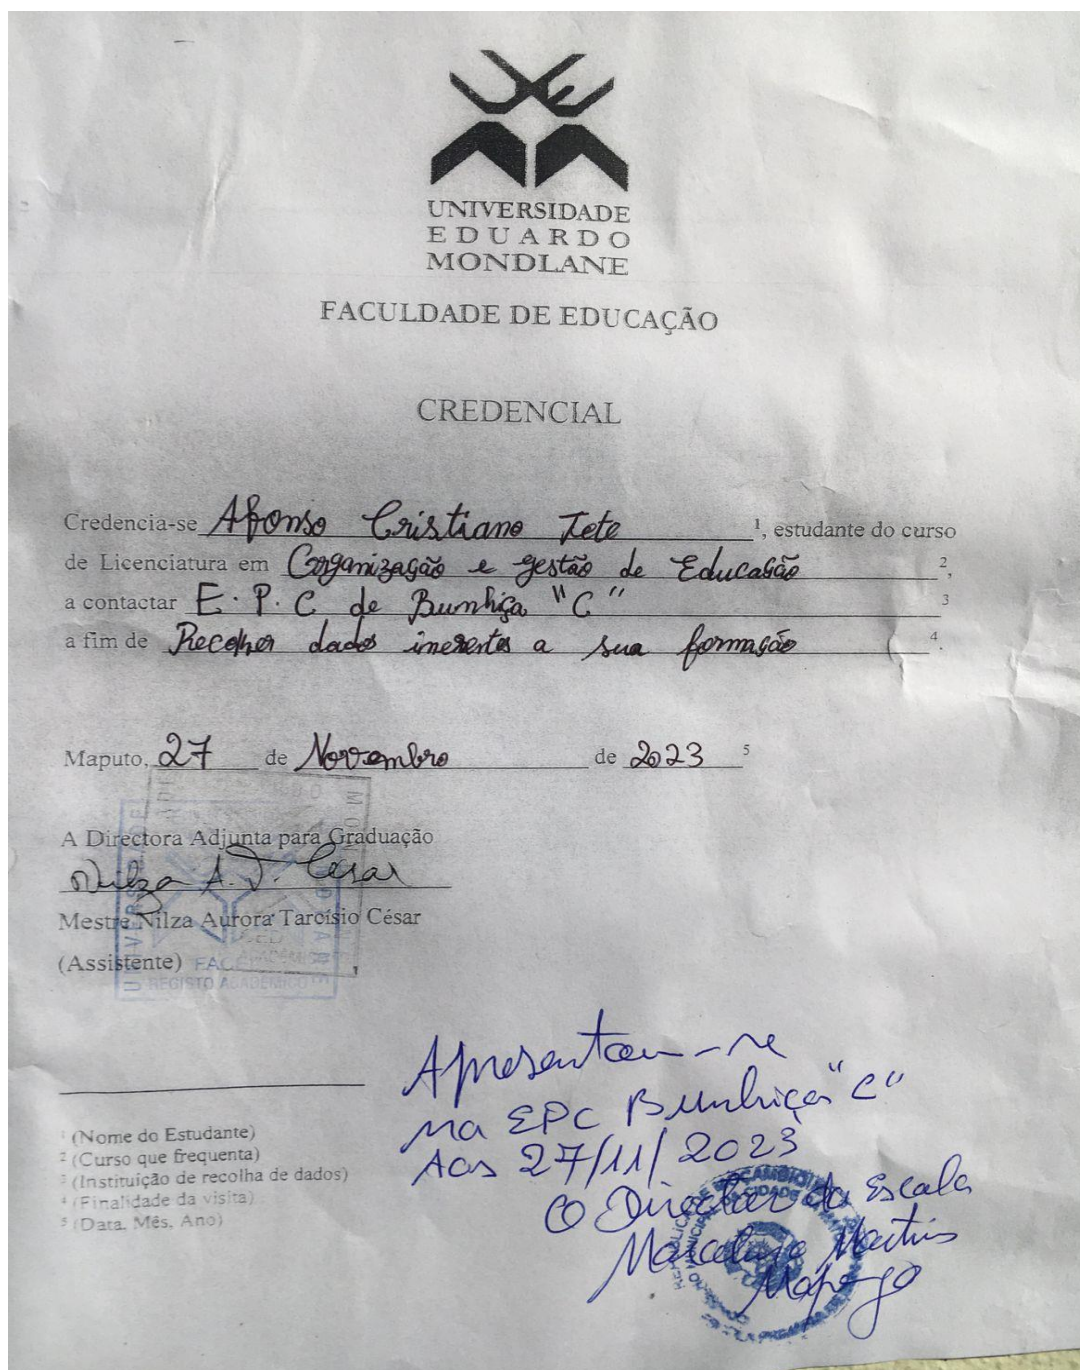 UNIVERSIDADE
EDUARDO
MONDLANE
FACULDADE DE EDUCAÇÃO
CREDENCIAL
Credencia-se Afonso Cristiano Tete ¹, estudante do curso
de Licenciatura em Organização e gestão de Educação ²,
a contactar E.P.C de Bunhiça "C" ³
a fim de Recolher dados inerentes a sua formação ⁴.
Maputo, 27 de Novembro de 2023 ⁵
A Directora Adjunta para Graduação
Nilza A. T. César
Mestre Nilza Aurora Tarcísio César
(Assistente)
REGISTO ACADÉMICO
Apresentou-se
na EPC Bunhiça "C"
Aos 27/11/2023
O Director da Escola
Martins
¹ (Nome do Estudante)
² (Curso que frequenta)
³ (Instituição de recolha de dados)
⁴ (Finalidade da visita)
⁵ (Data, Mês, Ano)